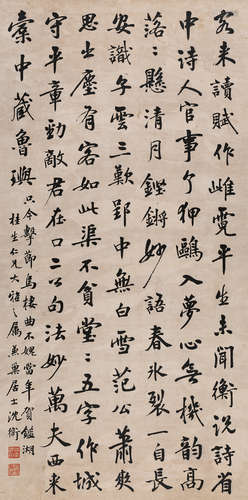 客来讀賦作雌霓平生未聞衡説詩省
中詩人官事了狎鷗入夢心無機韻高
落落懸清月鏗鏘妙語春冰裂一自高
安識子雲三歎郢中無白雪范公蕭爽
思出塵有客如此渠不貧堂堂五字作城
守平章勁敵君在口二公句法妙萬夫西来
橐中藏魯璵只今擊節烏棲曲不媿當年賀鑑湖
桂生仁兄大雅之屬兼巢居士沈衛